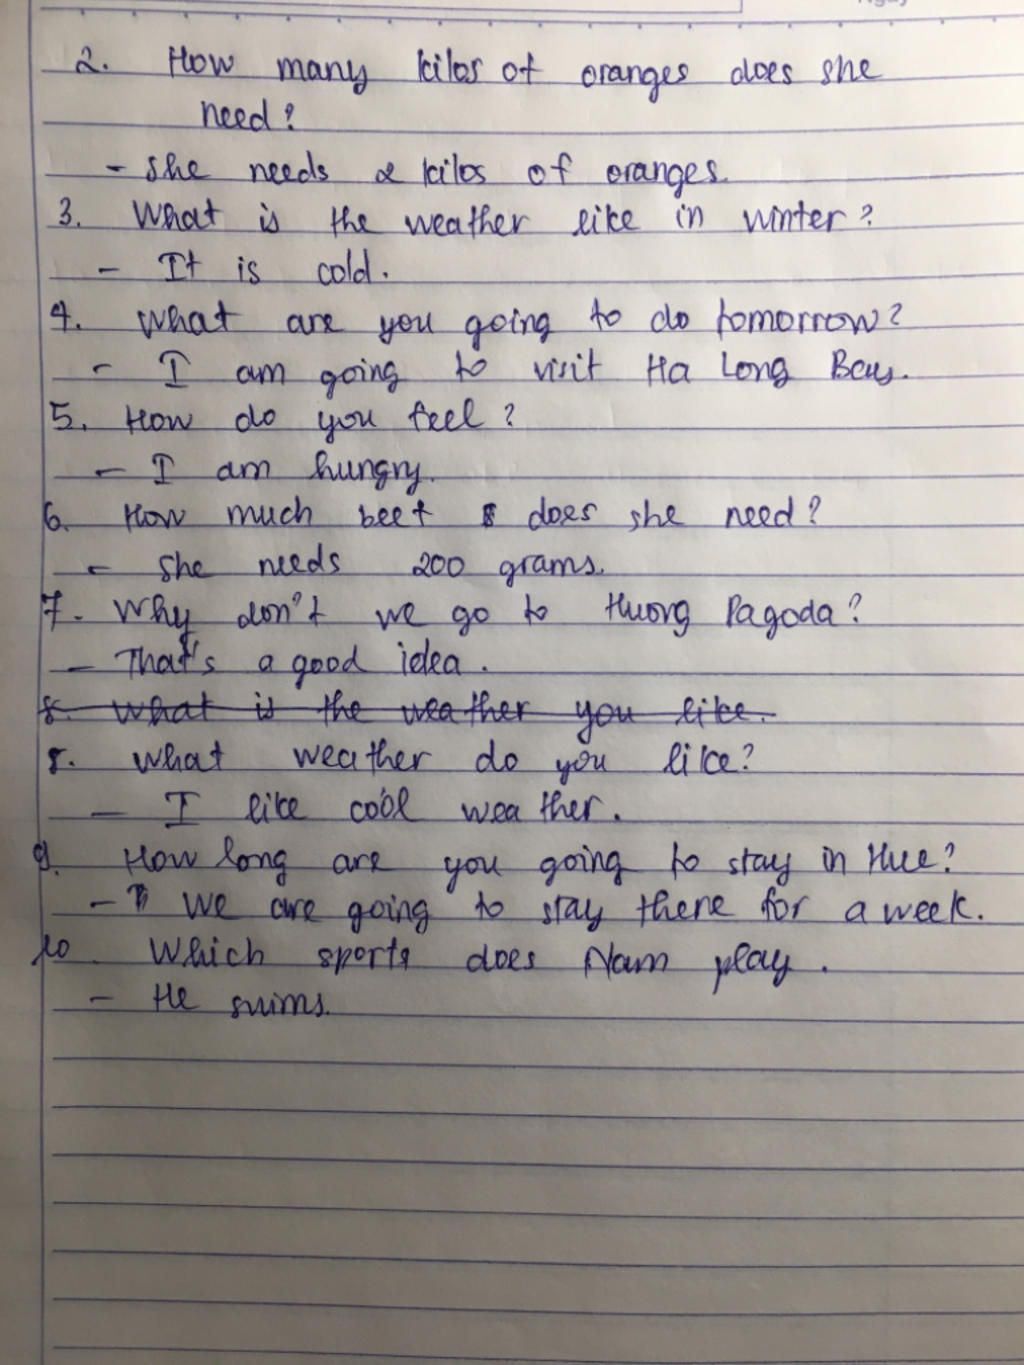 2. How many kilos of oranges does she
need?
- She needs 2 kilos of oranges.
3. What is the weather like in winter?
- It is cold.
4. What are you going to do tomorrow?
- I am going to visit Ha Long Bay.
5. How do you feel?
- I am hungry.
6. How much beef does she need?
- She needs 200 grams.
7. Why don't we go to Huong Pagoda?
- That's a good idea.
8. What is the weather you like.
8. What weather do you like?
- I like cool weather.
9. How long are you going to stay in Hue?
- We are going to stay there for a week.
10. Which sports does Nam play.
- He swims.